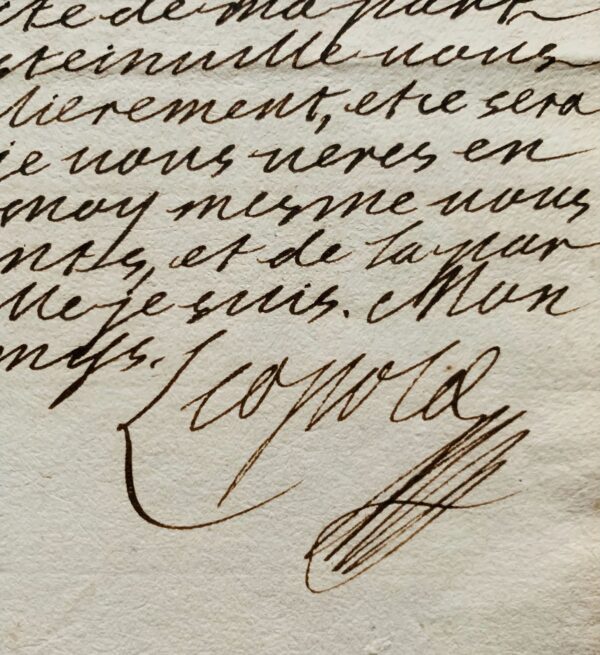 cte de ma part
steinuille uous
lierement, et ce sera
je uous ueres en
moy mesme uous
nts, et de la par
lle je suis. Mon
mys.
Leopold